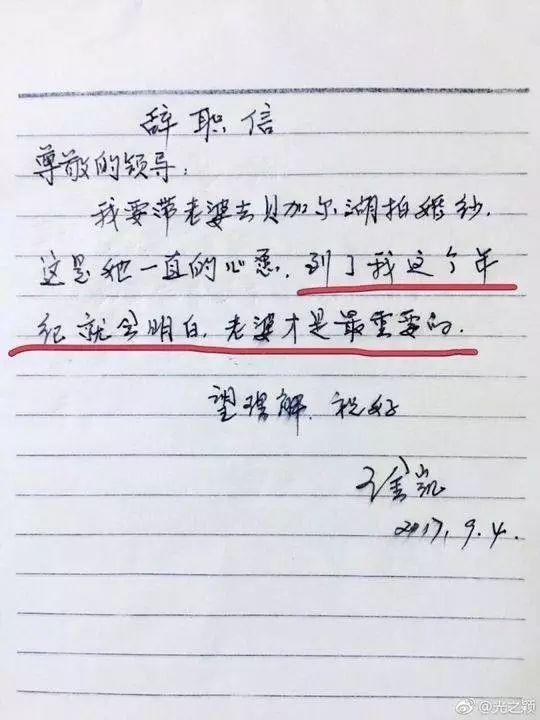 辞职信
尊敬的领导:
我要带老婆去贝加尔湖拍婚纱.
这是她一直的心愿.到了我这个年
纪就会明白.老婆才是最重要的.
望理解.祝好
徐凯
2017.9.4.
@光之颖